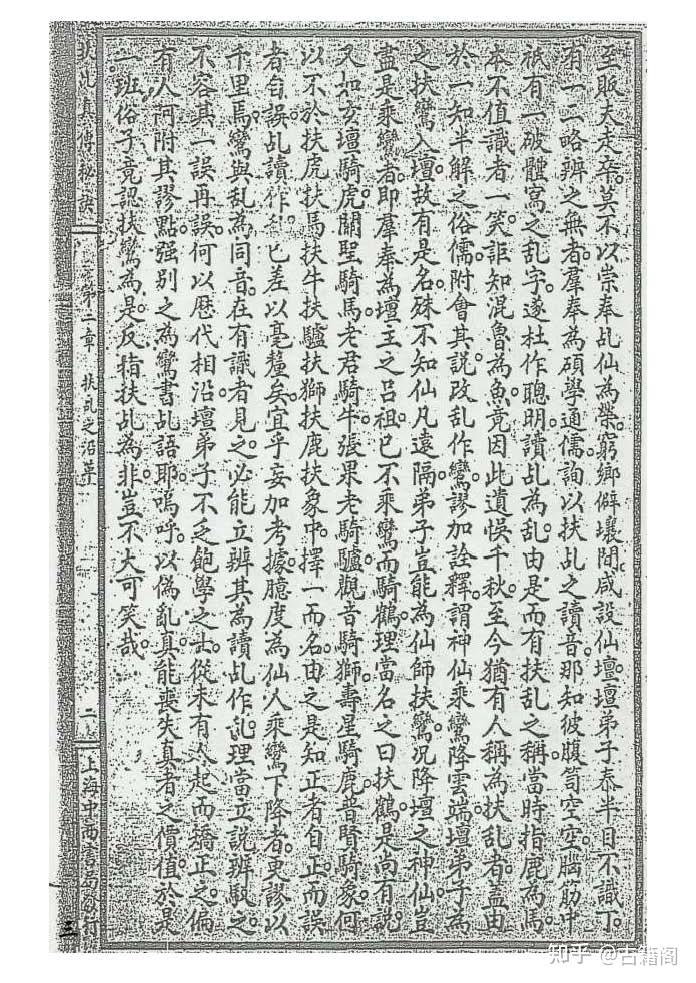 至販夫走卒。莫不以崇奉乩仙為榮。窮鄉僻壤間。咸設仙壇。壇弟子泰半目不識丁。
有一二略辨之無者。羣奉為碩學通儒。詢以扶乩之讀音。那知彼腹笥空空。腦筋中
祇有一破體寫之乱字。遂杜作聰明。讀乩為乱。由是而有扶乱之稱。當時指鹿為馬。
本不值識者一笑。詎知混魯為魚。竟因此遺悞千秋。至今猶有人稱為扶乱者。蓋由
於一知半解之俗儒。附會其說。改乱作鸞。謬加詮釋。謂神仙乘鸞降雲端。壇弟子為
之扶鸞入壇。故有是名。殊不知仙凡遠隔。弟子豈能為仙師扶鸞。况降壇之神仙。豈
盡是乘鸞者。即羣奉為壇主之呂祖。已不乘鸞而騎鶴。理當名之曰扶鶴。是尚有說。
又如玄壇騎虎。關聖騎馬。老君騎牛。張果老騎驢。觀音騎獅。壽星騎鹿。普賢騎象。何
以不於扶虎扶馬扶牛扶驢扶獅扶鹿扶象中。擇一而名。由之是知正者自正。而誤
者自誤。乩讀作乱。已差以毫釐矣。宜乎妄加考據。臆度為仙人乘鸞下降者。更謬以
千里焉。鸞與乱為同音。在有識者見之。必能立辨其為讀乩作乱。理當立說辨駁之。
不容其一誤再誤。何以歷代相沿。壇弟子不乏飽學之士。從未有人起而矯正之。偏
有人阿附其謬點。强別之為鸞書乩語耶。嗚呼。以偽亂真。能喪失真者之價值。於是
一班俗子。竟認扶鸞為是。反指扶乩為非。豈不大可笑哉。
扶乩真傳秘訣
第二章 扶乩之沿革
二
上海中西書局發行
三
知乎 @古籍阁